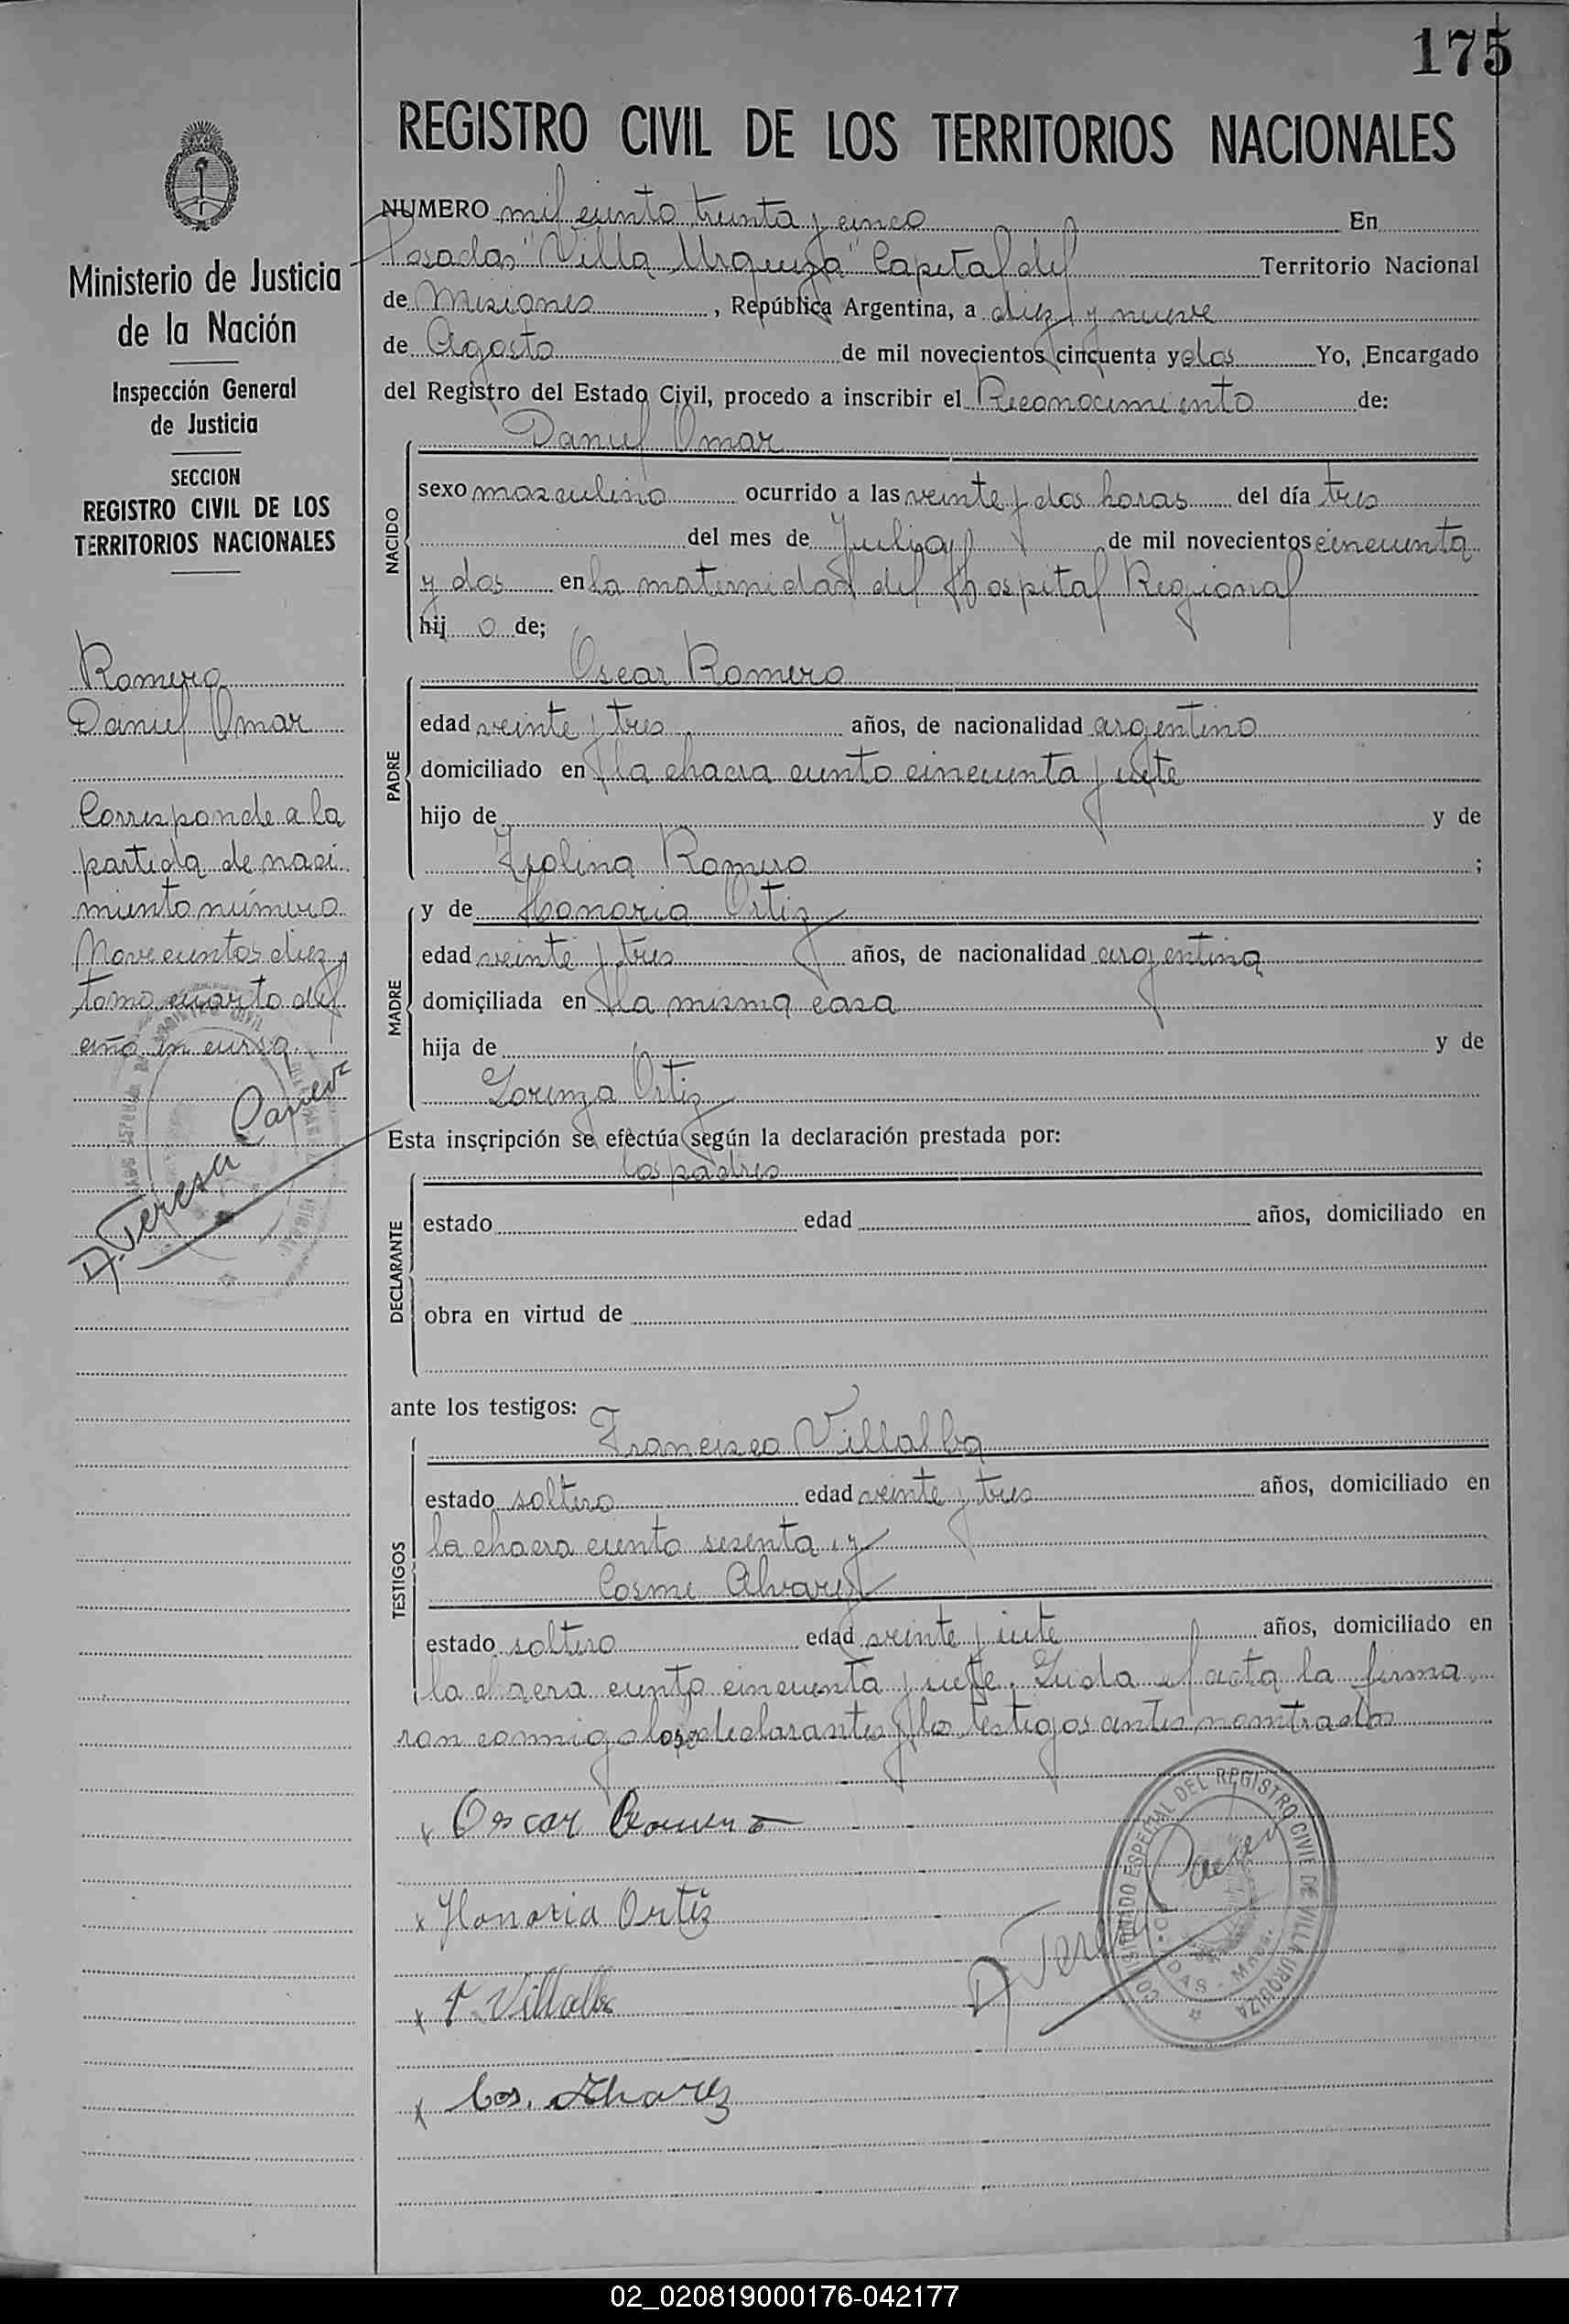 175
REGISTRO CIVIL DE LOS TERRITORIOS NACIONALES
Ministerio de Justicia
de la Nación
Inspección General
de Justicia
SECCION
REGISTRO CIVIL DE LOS
TERRITORIOS NACIONALES
Romero
Daniel Omar
Corresponde a la
partida de naci
miento número
Novecientos diez y
tomo cuarto del
año en curso.
D. Teresa
NUMERO mil ciento treinta y cinco En
Posadas "Villa Urquiza" Capital del Territorio Nacional
de Misiones , República Argentina, a diez y nueve
de Agosto de mil novecientos cincuenta y dos Yo, Encargado
del Registro del Estado Civil, procedo a inscribir el Reconocimiento de:
NACIDO
Daniel Omar
sexo masculino ocurrido a las veinte y dos horas del día tres
del mes de Julio de mil novecientos cincuenta
y dos en la maternidad del Hospital Regional
hij o de;
PADRE
Oscar Romero
edad veinte y tres años, de nacionalidad argentino
domiciliado en la chacra ciento cincuenta y siete
hijo de y de
Romero ;
MADRE
y de Honoria Ortiz
edad veinte y tres años, de nacionalidad argentina
domiciliada en la misma casa
hija de y de
Lorenza Ortiz
Esta inscripción se efectúa según la declaración prestada por:
DECLARANTE
los padres
estado edad años, domiciliado en
obra en virtud de
ante los testigos:
TESTIGOS
Francisco Villalba
estado soltero edad veinte y tres años, domiciliado en
la chacra ciento sesenta y
Cosme Alvarez
estado soltero edad veinte y siete años, domiciliado en
la chacra ciento cincuenta y siete. Leida el acta la firma
ron conmigo los declarantes y los testigos antes nombrados
x Oscar Romero
x Honoria Ortiz
x F. Villalba
x Cos. Alvarez
D. Teresa
COMISIONADO ESPECIAL DEL REGISTRO CIVIL DE VILLA URQUIZA
02_020819000176-042177